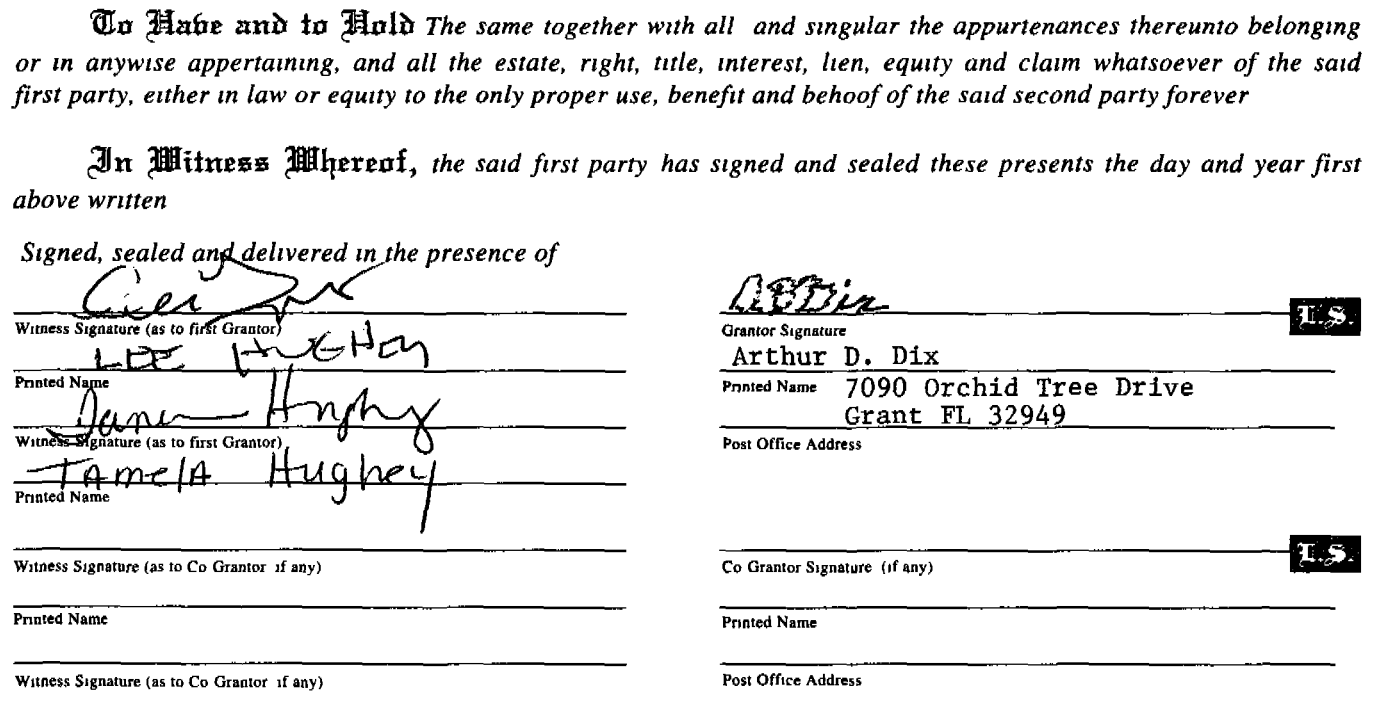 To Have and to Hold The same together with all and singular the appurtenances thereunto belonging
or in anywise appertaining, and all the estate, right, title, interest, lien, equity and claim whatsoever of the said
first party, either in law or equity to the only proper use, benefit and behoof of the said second party forever
In Witness Whereof, the said first party has signed and sealed these presents the day and year first
above written
Signed, sealed and delivered in the presence of
Witness Signature (as to first Grantor)
LEE HUGHEY
Printed Name
Hughey
Witness Signature (as to first Grantor)
TAmelA Hughey
Printed Name
Witness Signature (as to Co Grantor if any)
Printed Name
Witness Signature (as to Co Grantor if any)
Dix
L.S.
Grantor Signature
Arthur D. Dix
Printed Name 7090 Orchid Tree Drive
Grant FL 32949
Post Office Address
L.S.
Co Grantor Signature (if any)
Printed Name
Post Office Address